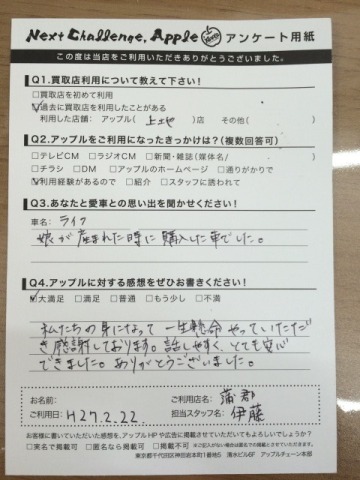 Next Challenge. Apple アンケート用紙
この度は当店をご利用いただきありがとうございました。
Q1.買取店利用について教えて下さい!
□買取店を初めて利用
☑過去に買取店を利用したことがある
利用した店舗:アップル( 上土地 )店 その他( )
Q2.アップルをご利用になったきっかけは?(複数回答可)
□テレビCM □ラジオCM □新聞・雑誌(媒体名/ )
□チラシ □DM □アップルのホームページ □通りがかりで
☑利用経験があるので □紹介 □スタッフに誘われて
Q3.あなたと愛車との思い出を聞かせください!
車名:ライフ
娘が産まれた時に購入した車でした。
Q4.アップルに対する感想をぜひお書きください!
☑大満足 □満足 □普通 □もう少し □不満
私たちの身になって一生懸命やっていただ
き感謝しております。話しやすく、とても安心
できました。ありがとうございました。
お名前: ご利用店名: 蒲郡
ご利用日: H27.2.22. 担当スタッフ名: 伊藤
お客様に書いていただいた感想を、アップルHPや広告に掲載させていただいてもよろしいでしょうか?
□実名で掲載可 □匿名なら掲載可 □掲載不可 ※ご記入がない場合は匿名での掲載とさせていただきます。
東京都千代田区神田岩本町1番地5 清水ビル6F アップルチェーン本部